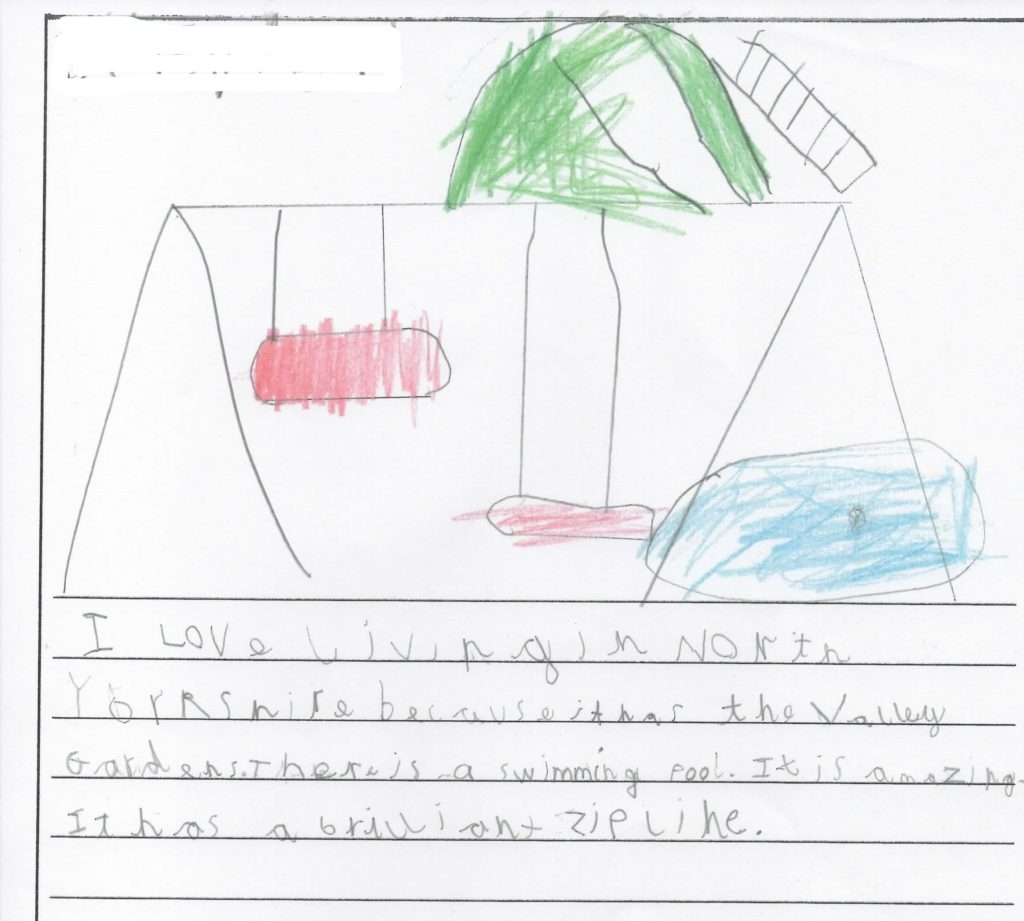 I Love living in North
Yorkshire because it has the Valley
Gardens. There is a swimming pool. It is amazing.
It has a brilliant zipline.